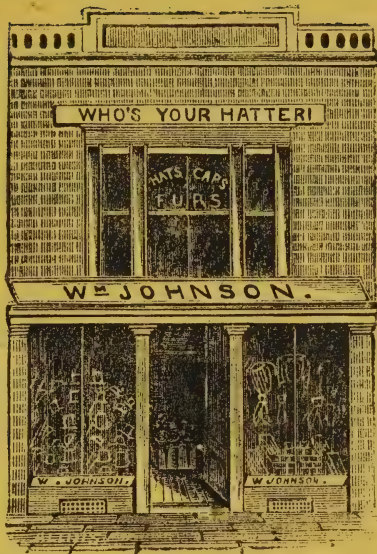 WHO'S YOUR HATTER!
HATS CAPS
FURS
WM JOHNSON.
W. JOHNSON.
W. JOHNSON.